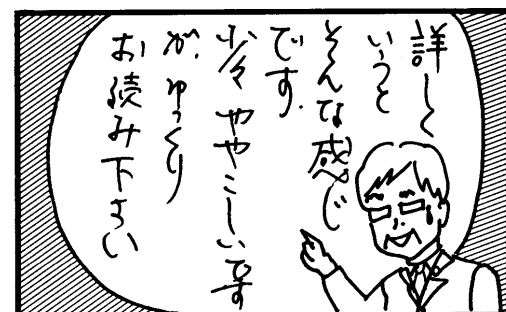 詳しく
いうと
そんな感じ
です.
少々ややこしいです
が、ゆっくり
お読み下さい